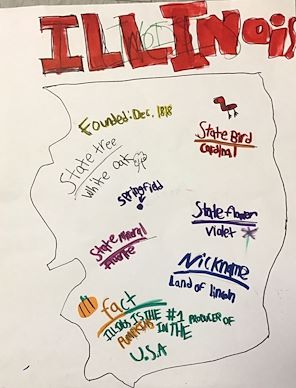 ILLINois
Founded: Dec. 1818
State tree
White oak
State Bird
Cardinal
Springfield
State flower
violet
State mineral
Nickname
Land of lincoln
fact
ILLINOIS IS THE #1 PRODUCER OF
PUMPKINS IN THE
U.S.A